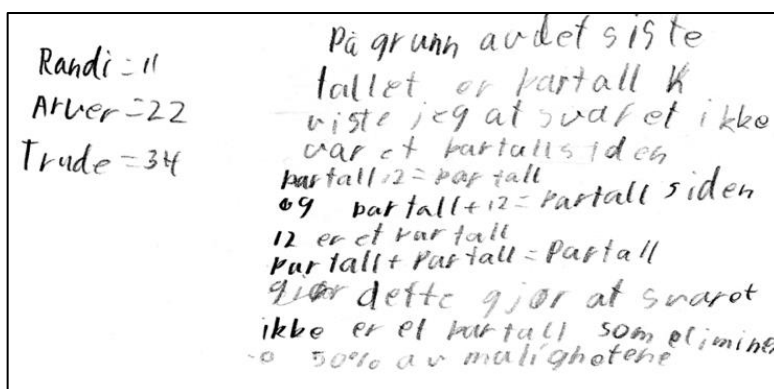 Randi = 11
Arver = 22
Trude = 34
På grunn av det siste
tallet er partall K
viste jeg at svaret ikke
var et partall siden
partall·2 = partall
og partall + 12 = partall siden
12 er et partall
partall + partall = Partall
gjør dette gjør at svaret
ikke er et partall som eliminer
50% av mulighetene